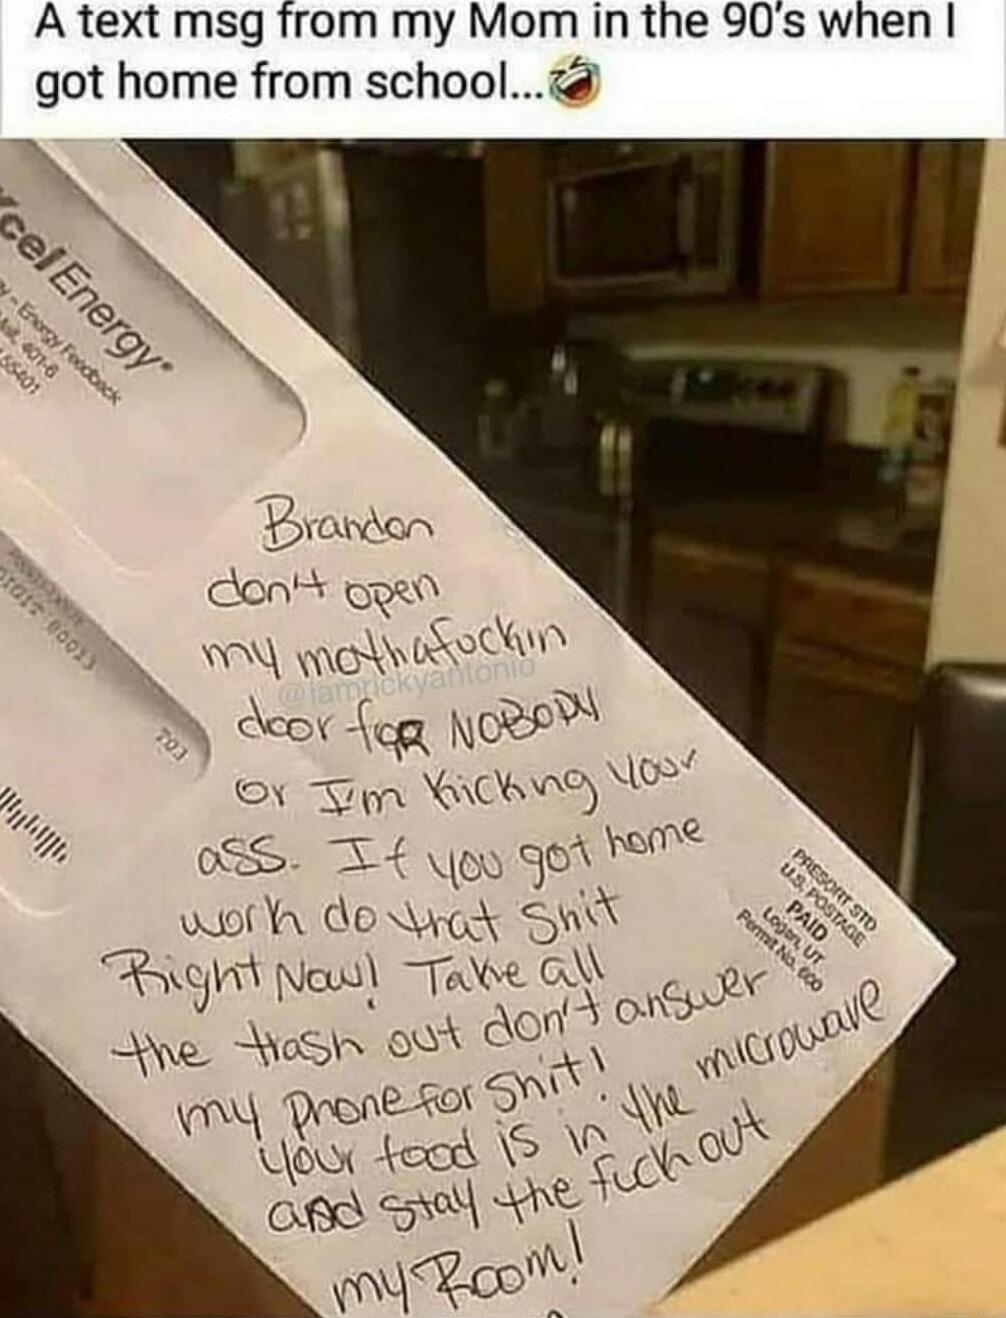 A text msg from my Mom in the 90's when I
got home from school...🤣
Xcel Energy
y - Energy Feedback
401-6
55401
DIGIT 00013
703
Brandon
don't open
my mothafuckin
@iamrickyantonio
door for NOBODY
or I'm Kicking your
ass. If you got home
work do that Shit
Right Now! Take all
the trash out don't answer
my phone for Shit!
your food is in the microwave
and stay the fuck out
my Room!
PRESORT STD
U.S. POSTAGE
PAID
Logan, UT
Permit No. 600